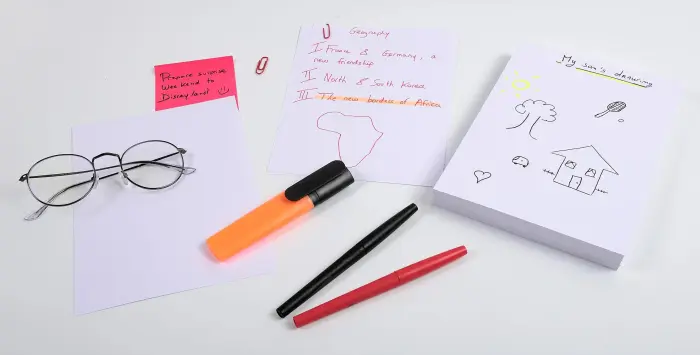 Prepare surprise
Weekend to
Disneyland
Geography
I France & Germany, a
new friendship
II North & South Korea
III The new borders of Africa
My son's drawing